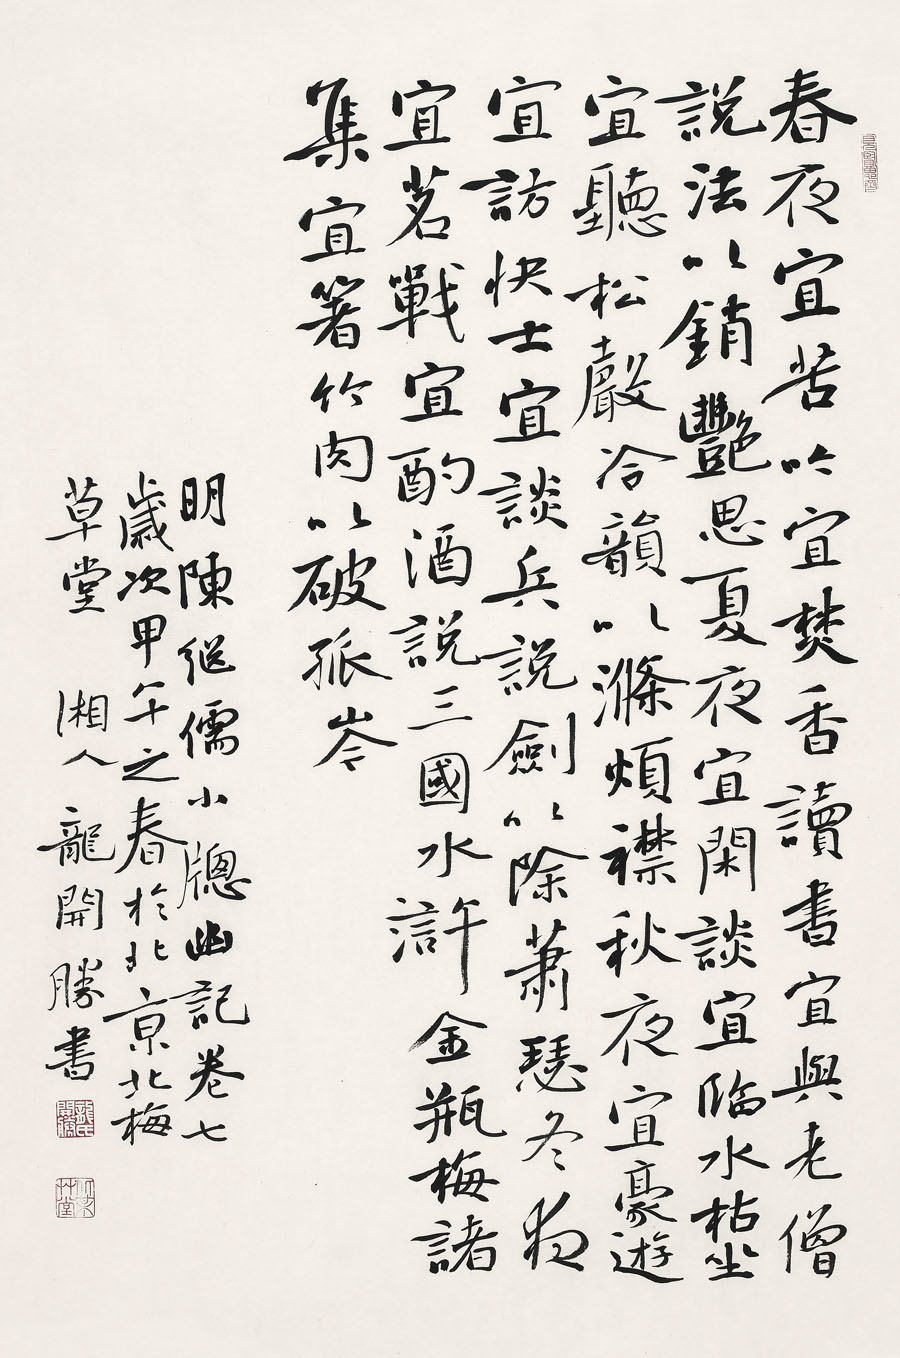 春夜宜苦吟宜焚香讀書宜與老僧
說法以銷艷思夏夜宜閑談宜臨水枯坐
宜聽松聲冷韻以滌煩襟秋夜宜豪遊
宜訪快士宜談兵說劍以除蕭瑟冬夜
宜茗戰宜酌酒說三國水滸金瓶梅諸
集宜箸竹肉以破孤岑
明陳継儒小牕幽記卷七
歲次甲午之春於北京北梅
草堂 湘人龍開勝書